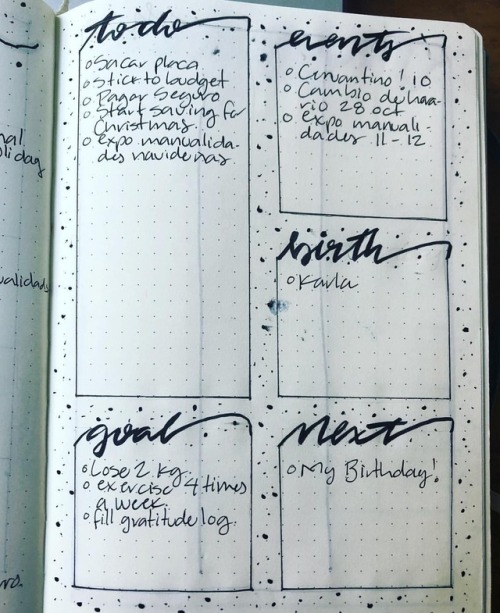 to do
○ Sacar placa
○ Stick to budget
○ Pagar Seguro
○ Start saving for
Christmas.
○ expo manualida-
des navideñas.
events
○ Cervantino! 10
○ Cambio de hora-
rio 28 oct
○ expo manuali-
dades 11-12
birth
○ Karla
goal
○ Lose 2 kg.
○ exercise 4 times
a week.
○ fill gratitude log.
Next
○ My Birthday!